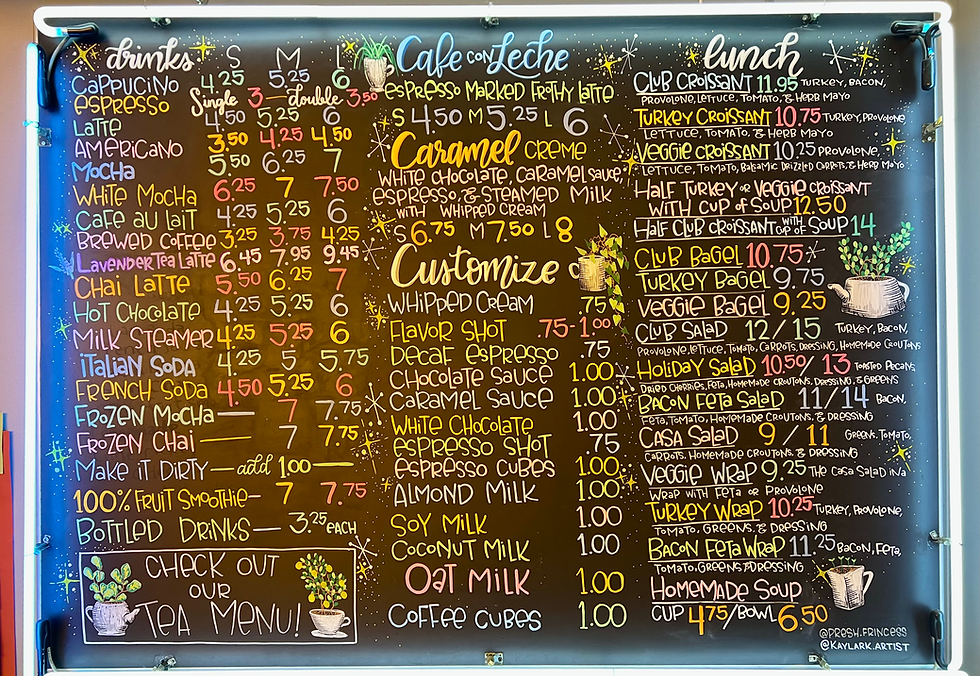 drinks S M L
CAPPUCINO 4.25 5.25 6
ESPRESSO Single 3 — double 3.50
LATTE 4.50 5.25 6
AMERICANO 3.50 4.25 4.50
MOCHA 5.50 6.25 7
WHITE MOCHA 6.25 7 7.50
CAFE AU LAIT 4.25 5.25 6
BREWED COFFEE 3.25 3.75 4.25
LAVENDER TEA LATTE 6.45 7.95 9.45
CHAI LATTE 5.50 6.25 7
HOT CHOCOLATE 4.25 5.25 6
MILK STEAMER 4.25 5.25 6
ITALIAN SODA 4.25 5 5.75
FRENCH SODA 4.50 5.25 6
FROZEN MOCHA — 7 7.75
FROZEN CHAI — 7 7.75
MAKE IT DIRTY — add 1.00 —
100% FRUIT SMOOTHIE — 7 7.75
BOTTLED DRINKS — 3.25 EACH
CHECK OUT
OUR
TEA MENU!
Cafe con Leche
ESPRESSO MARKED FROTHY LATTE
S 4.50 M 5.25 L 6
Caramel CREME
WHITE CHOCOLATE, CARAMEL SAUCE,
ESPRESSO, & STEAMED MILK
WITH WHIPPED CREAM
S 6.75 M 7.50 L 8
Customize
WHIPPED CREAM .75
FLAVOR SHOT .75-1.00
DECAF ESPRESSO .75
CHOCOLATE SAUCE 1.00
CARAMEL SAUCE 1.00
WHITE CHOCOLATE 1.00
ESPRESSO SHOT .75
ESPRESSO CUBES 1.00
ALMOND MILK 1.00
SOY MILK 1.00
COCONUT MILK 1.00
OAT MILK 1.00
COFFEE CUBES 1.00
lunch
CLUB CROISSANT 11.95 TURKEY, BACON,
PROVOLONE, LETTUCE, TOMATO, & HERB MAYO
TURKEY CROISSANT 10.75 TURKEY, PROVOLONE,
LETTUCE, TOMATO, & HERB MAYO
VEGGIE CROISSANT 10.25 PROVOLONE,
LETTUCE, TOMATO, BALSAMIC DRIZZLED CARROTS, & HERB MAYO
HALF TURKEY OR VEGGIE CROISSANT
WITH CUP OF SOUP 12.50
HALF CLUB CROISSANT WITH CUP OF SOUP 14
CLUB BAGEL 10.75
TURKEY BAGEL 9.75
VEGGIE BAGEL 9.25
CLUB SALAD 12/15 TURKEY, BACON,
PROVOLONE, LETTUCE, TOMATO, CARROTS, DRESSING, HOMEMADE CROUTONS
HOLIDAY SALAD 10.50/13 TOASTED PECANS,
DRIED CHERRIES, FETA, HOMEMADE CROUTONS, DRESSING, & GREENS
BACON FETA SALAD 11/14 BACON,
FETA, TOMATO, HOMEMADE CROUTONS, & DRESSING
CASA SALAD 9/11 GREENS, TOMATO,
CARROTS, HOMEMADE CROUTONS, & DRESSING
VEGGIE WRAP 9.25 THE CASA SALAD IN A
WRAP WITH FETA OR PROVOLONE
TURKEY WRAP 10.25 TURKEY, PROVOLONE,
TOMATO, GREENS, & DRESSING
BACON FETA WRAP 11.25 BACON, FETA,
TOMATO, GREENS & DRESSING
HOMEMADE SOUP
CUP 4.75/BOWL 6.50
@PRESH.FRINCESS
@KAYLARK.ARTIST